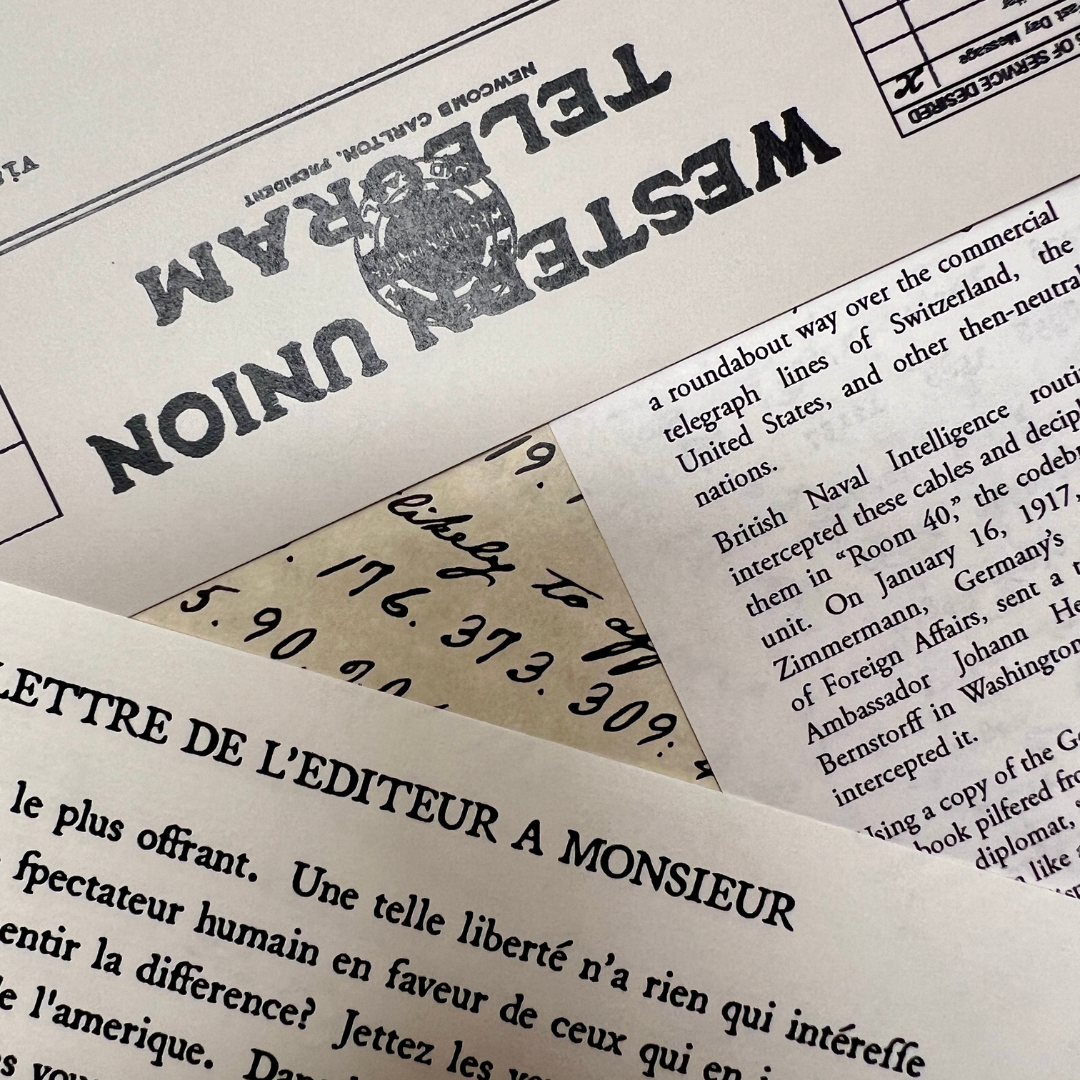 WESTERN UNION
TELEGRAM
NEWCOMB CARLTON, PRESIDENT
OF SERVICE DESIRED
Day Message
x
a roundabout way over the commercial
telegraph lines of Switzerland, the
United States, and other then-neutral
nations.
British Naval Intelligence
intercepted these cables and
them in “Room 40,” the
unit. On January 16, 1917,
Zimmermann, Germany’s
of Foreign Affairs, sent a
Ambassador Johann
Bernstorff in Washington
intercepted it.
Using a copy of the
book pilfered
diplomat,
like
19.
likely to
. 176. 373. 309.
5. 90.
LETTRE DE L’EDITEUR A MONSIEUR
le plus offrant. Une telle liberté n’a rien qui intéreſſe
ſpectateur humain en faveur de ceux qui en
entir la difference? Jettez les
l'amerique.